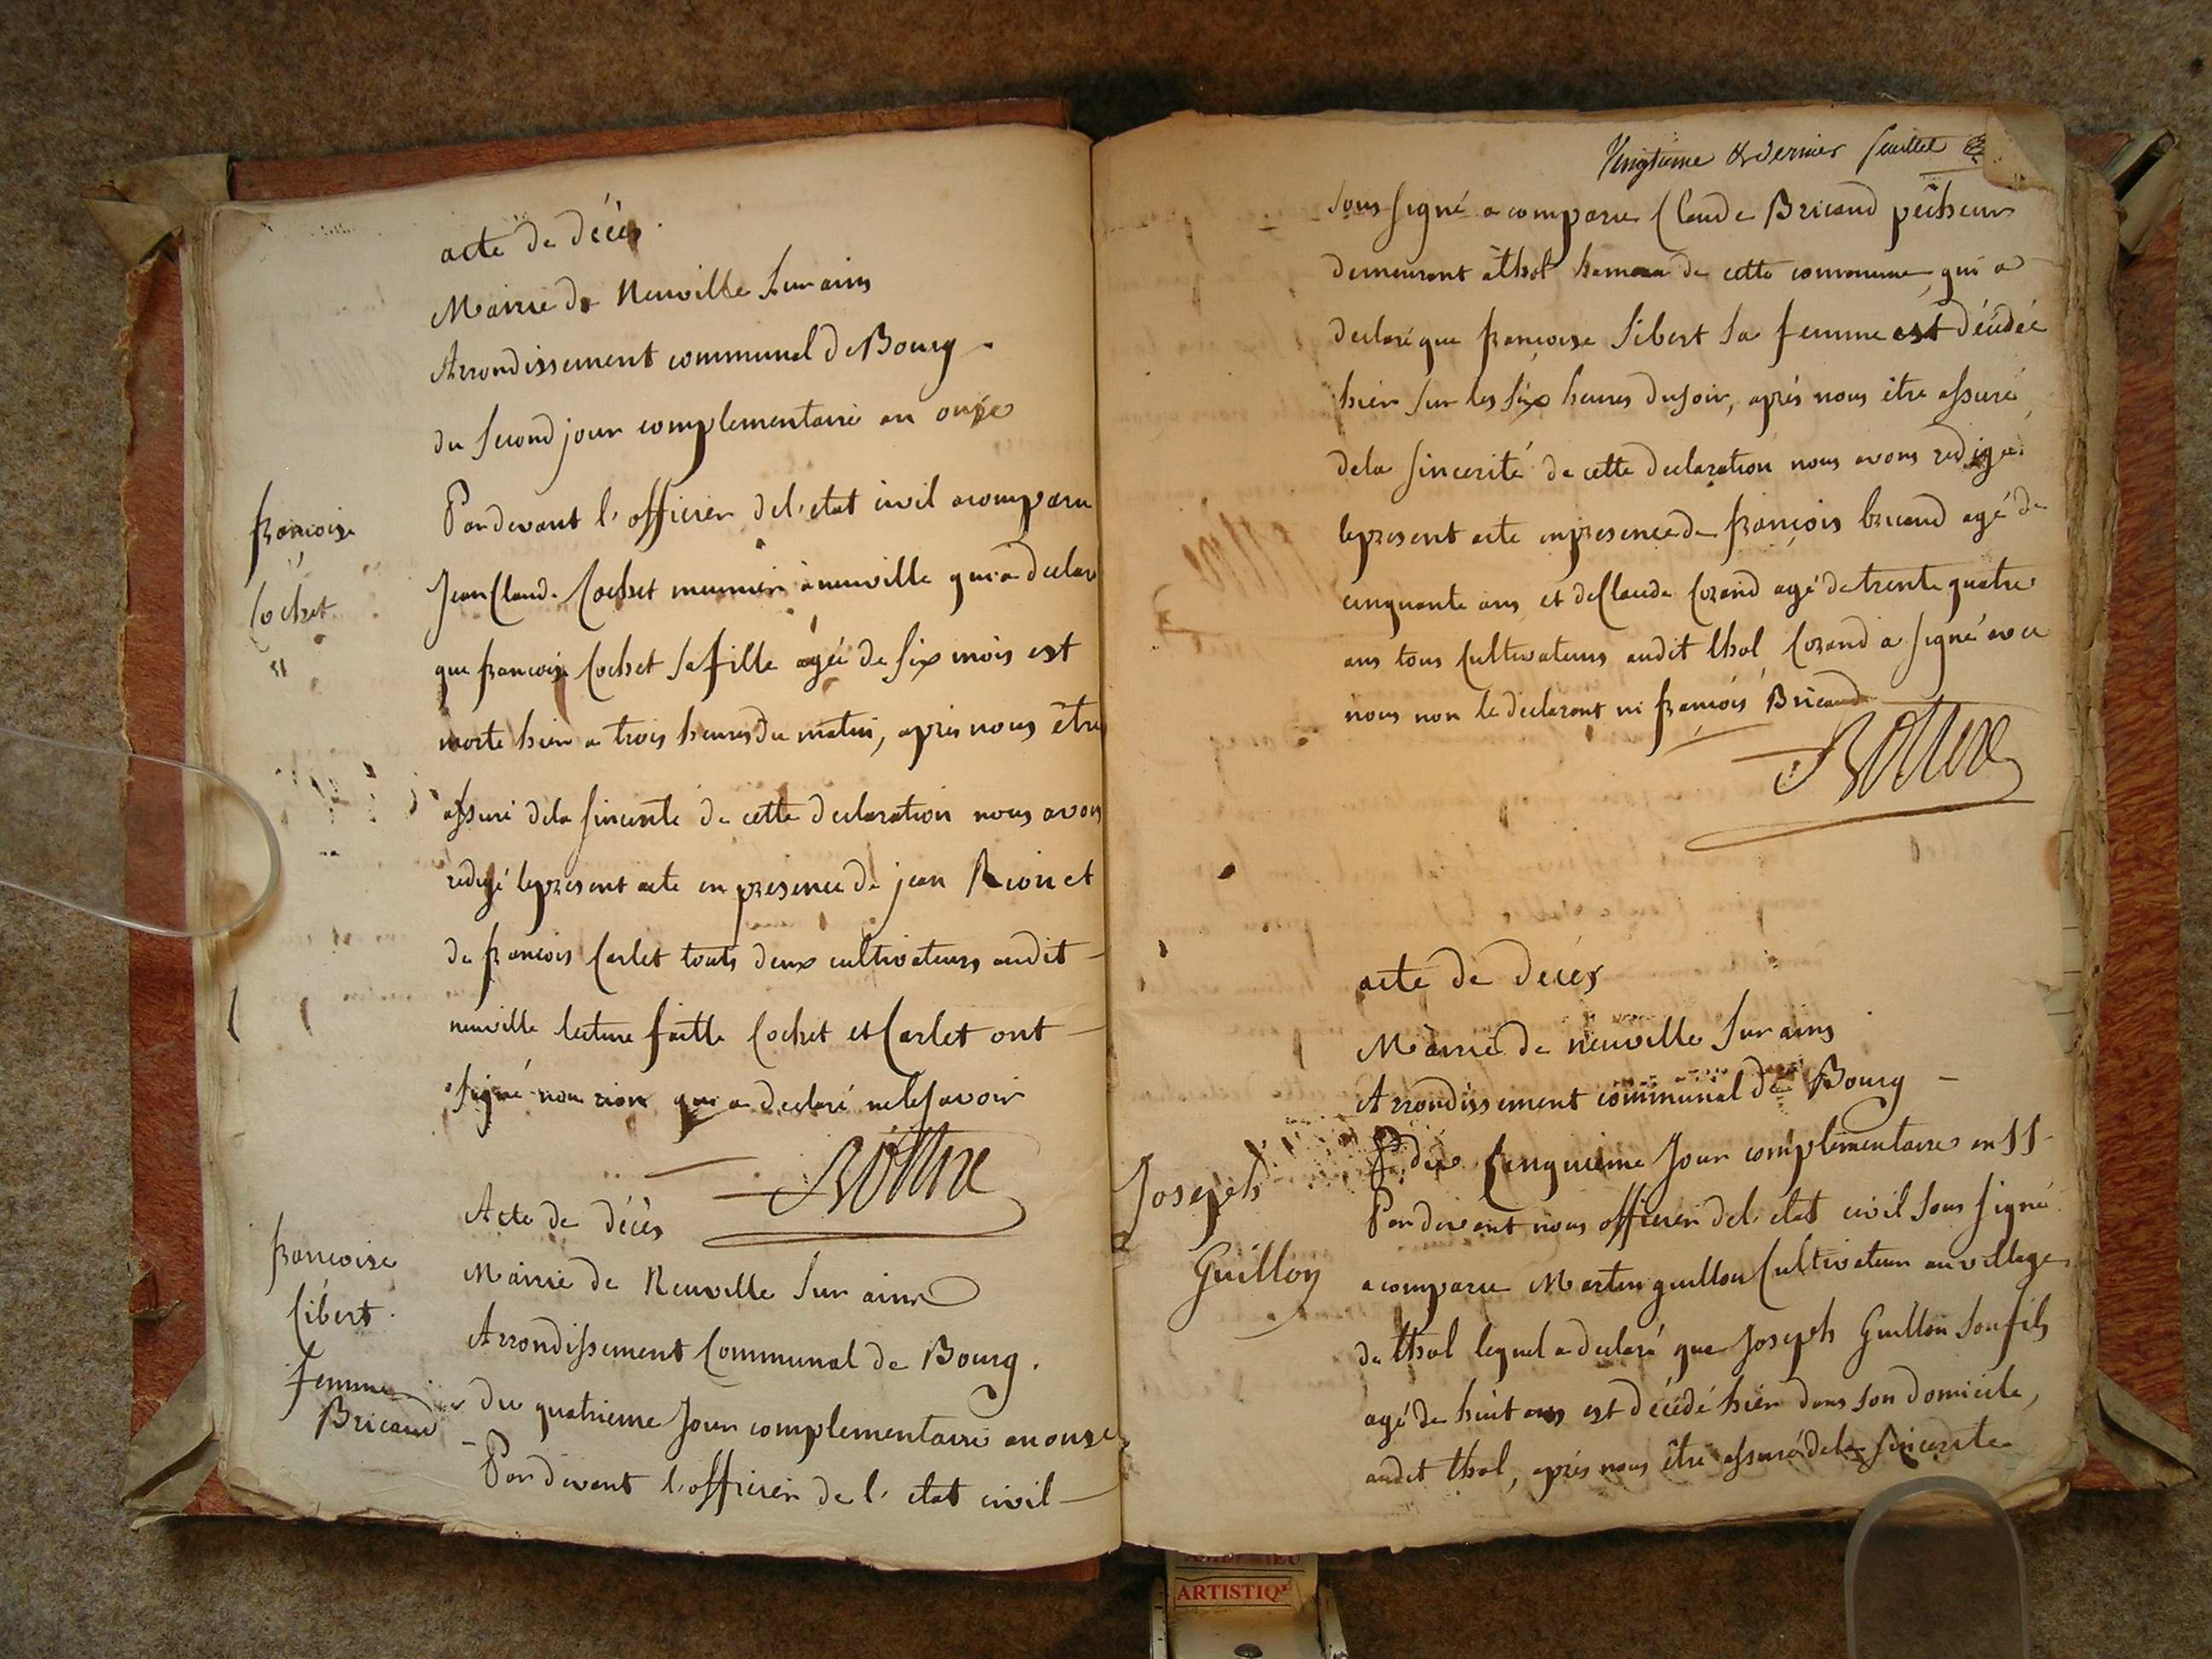 acte de décès.
Mairie de Neuville sur ains
Arrondissement communal de Bourg.
du second jour complementaire an onze
francoise
Cochet
Pardevant l'officier del'etat civil acomparu
Jean Claude Cochet meunier à neuville qui a declaré
que francoise Cochet sa fille agée de six mois est
morte hier a trois heures du matin, apres nous être
assuré dela sincerité de cette declaration nous avons
redigé lepresent acte en presence de jean Rion et
de francois Carlet touts deux cultivateurs audit
neuville lecture faitte Cochet et Carlet ont
signé non rion qui a declaré nelesavoir
francoise
Sibert
femme
Bricand
Acte de décès
Mairie de Neuville sur ains
Arrondissement Communal de Bourg.
Du quatrieme Jour complementaire an onze
Pardevant l'officier de l'etat civil
Vingtieme & dernier feuillet
sous signé a comparu Claude Bricand pêcheur
demeurant à thol hameau de cette commune, qui a
declaré que françoise Sibert sa femme est décédée
hier sur les six heures dusoir, aprés nous être assuré
dela sincerité de cette declaration nous avons redigé
lepresent acte enpresence de françois bricand agé de
cinquante ans et deClaude Corand agé de trente quatre
ans tous Cultivateurs audit thol Corand a signé avec
nous non le declarant ni françois Bricand
acte de décés
Mairie de neuville sur ains
Arrondissement communal de Bourg
Joseph
Guillon
du Cinquieme Jour complementaire an 11
Pardevant nous officier del'etat civil sous signé
a comparu Martin guillon Cultivateur au village
de thol lequel a declaré que Joseph Guillon son fils
agé de huit ans est décédé hier dans son domicile,
audit thol, aprés nous être assuré dela sincerite
ARTISTIQ